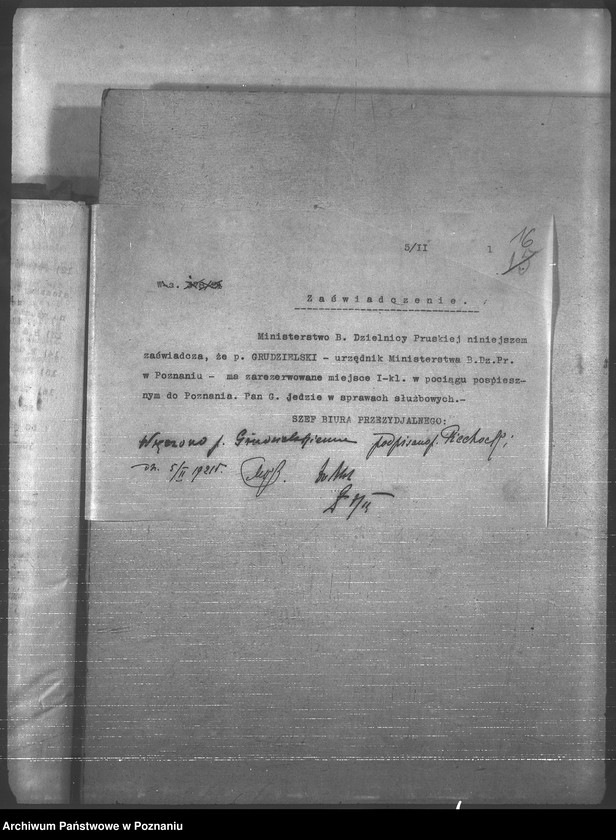 5/II 1
16
15
Zaświadczenie.
Ministerstwo B. Dzielnicy Pruskiej niniejszem
zaświadcza, że p. GRUDZIELSKI - urzędnik Ministerstwa B.Dz.Pr.
w Poznaniu - ma zarezerwowane miejsce I-kl. w pociągu pośpiesz-
nym do Poznania. Pan G. jedzie w sprawach służbowych.-
SZEF BIURA PRZEZYDJALNEGO:
Wręczono p. Grudzielskiemu podpisano/. Piechocki
dn. 5/II 1921r.
Archiwum Państwowe w Poznaniu